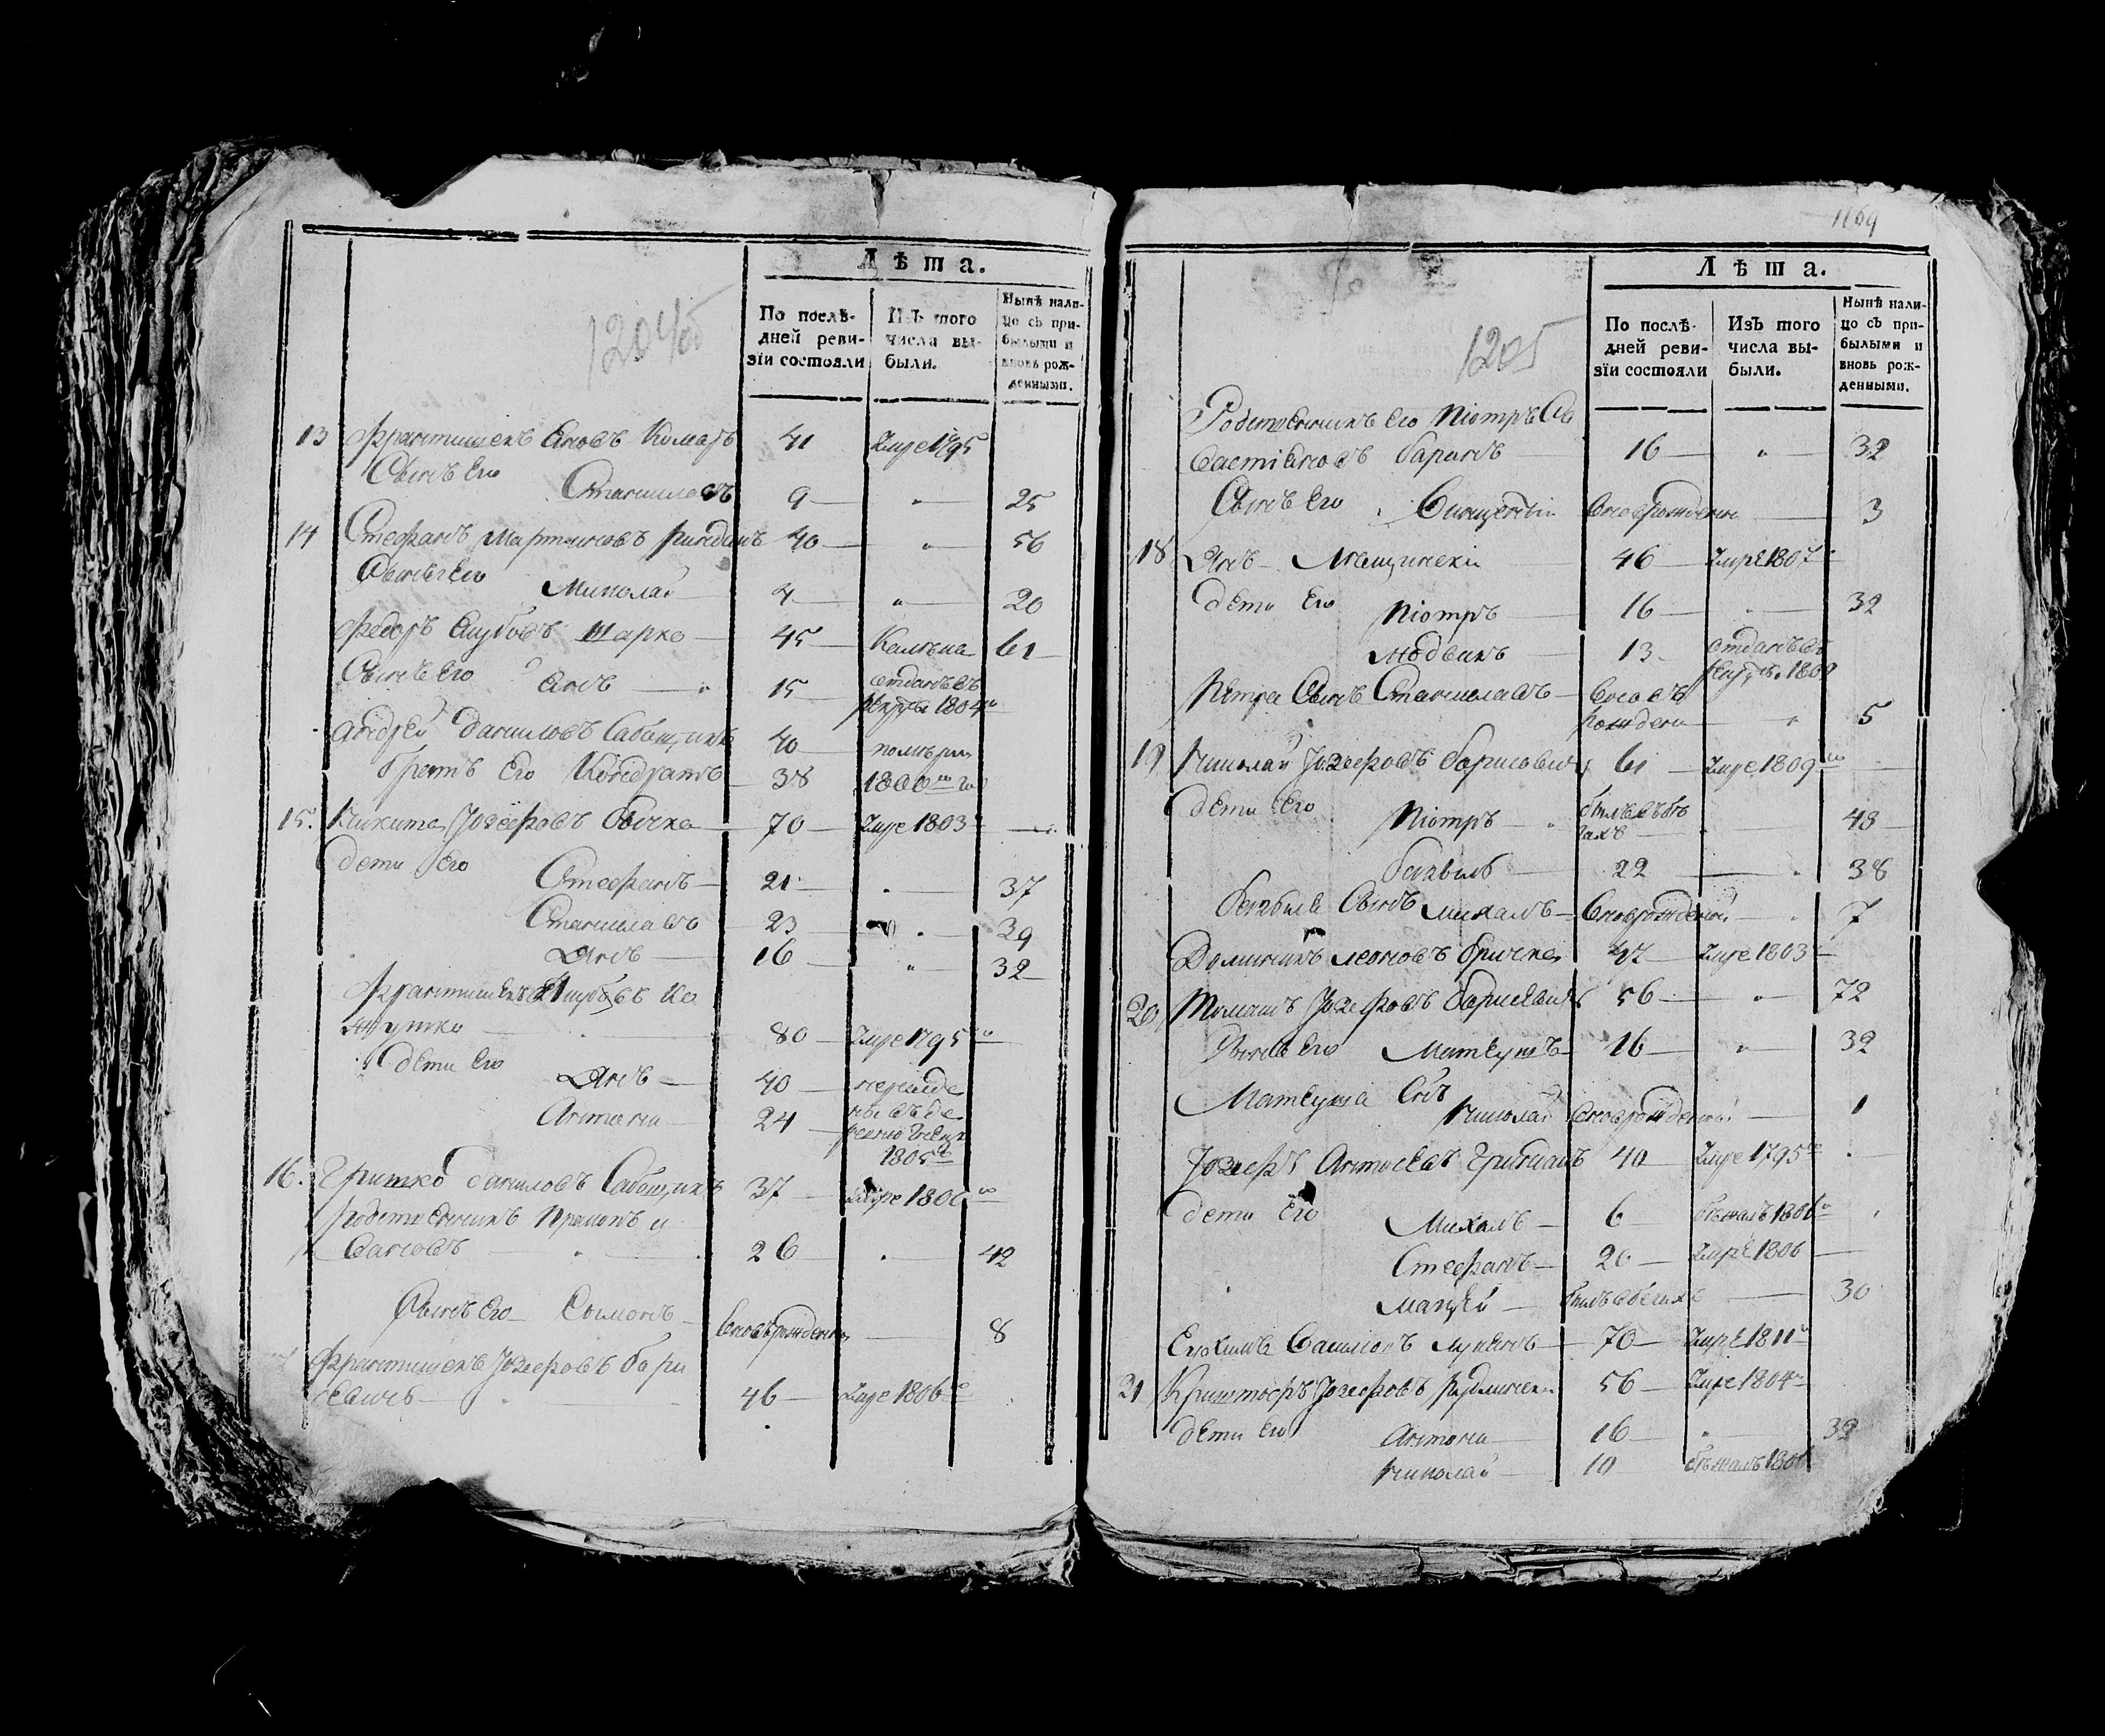 1204 об
Лѣта.
По послѣ-
дней реви-
зіи состояли
Изъ того
числа вы-
были.
Нынѣ нали-
цо съ при-
былыми и
вновь рож-
денными.
13 Франтишекъ Яновъ 41 Умре 1795
Сынъ Его Станиславъ 9 25
14 Стефанъ Мартиновъ 40 56
Сынъ Его Миколай 4 20
Федоръ Якубовъ Шарко 45 61
Сынъ Его Янъ 15 отданъ въ
рекруты 1804
Андрей Даниловъ 40 померли
братъ Его Кондратъ 38 1800 го
15. Никита Іозефовъ 70 Умре 1803
дети Его Стефанъ 21 37
Станиславъ 23 39
Янъ 16 32
Франтишекъ Якубовъ
80 Умре 1795
дети Его Янъ 40
Антони 24
1805
16. Грицко Даниловъ 37 Умре 1806
родственникъ
26 42
Сынъ Его Сымонъ вновьрожденъ 8
Франтишекъ Іозефовъ Бори
севичъ 46 Умре 1806
1169
1205
Лѣта.
По послѣ-
дней реви-
зіи состояли
Изъ того
числа вы-
были.
Нынѣ нали-
цо съ при-
былыми и
вновь рож-
денными.
Родственникъ Его Піотръ Се
бастіановъ Баранъ 16 32
Сынъ Его Винцентій вновьрожденъ 3
18 Янъ Мещинскій 46 Умре 1807
дети Его Піотръ 16 32
Людвикъ 13 отданъ въ
рекруты 1802
Петра Сынъ Станиславъ вновь
рожденъ 5
19 Николай Іозефовъ Борисович 61 Умре 1809
дети Его Піотръ былъ въ бѣ
гахъ 48
22 38
Сынъ Михалъ вновьрожденый 7
Доминикъ Леоновъ 47 Умре 1803
20 Томашъ Іозефовъ Борисевич 56 72
Сынъ Его Матеушъ 16 32
Матеуша Сынъ
Николай вновьрожденый 1
Іозефъ Антоевъ 40 Умре 1795
дети Его Михалъ 6 бѣжалъ 1806
Стефанъ 20 Умре 1806
Мацей былъ в бегахъ 30
70 Умре 1811
21 Криштофъ Іозефовъ 56 Умре 1804
дети Его Антони 16 32
Николай 10 бѣжалъ 1806